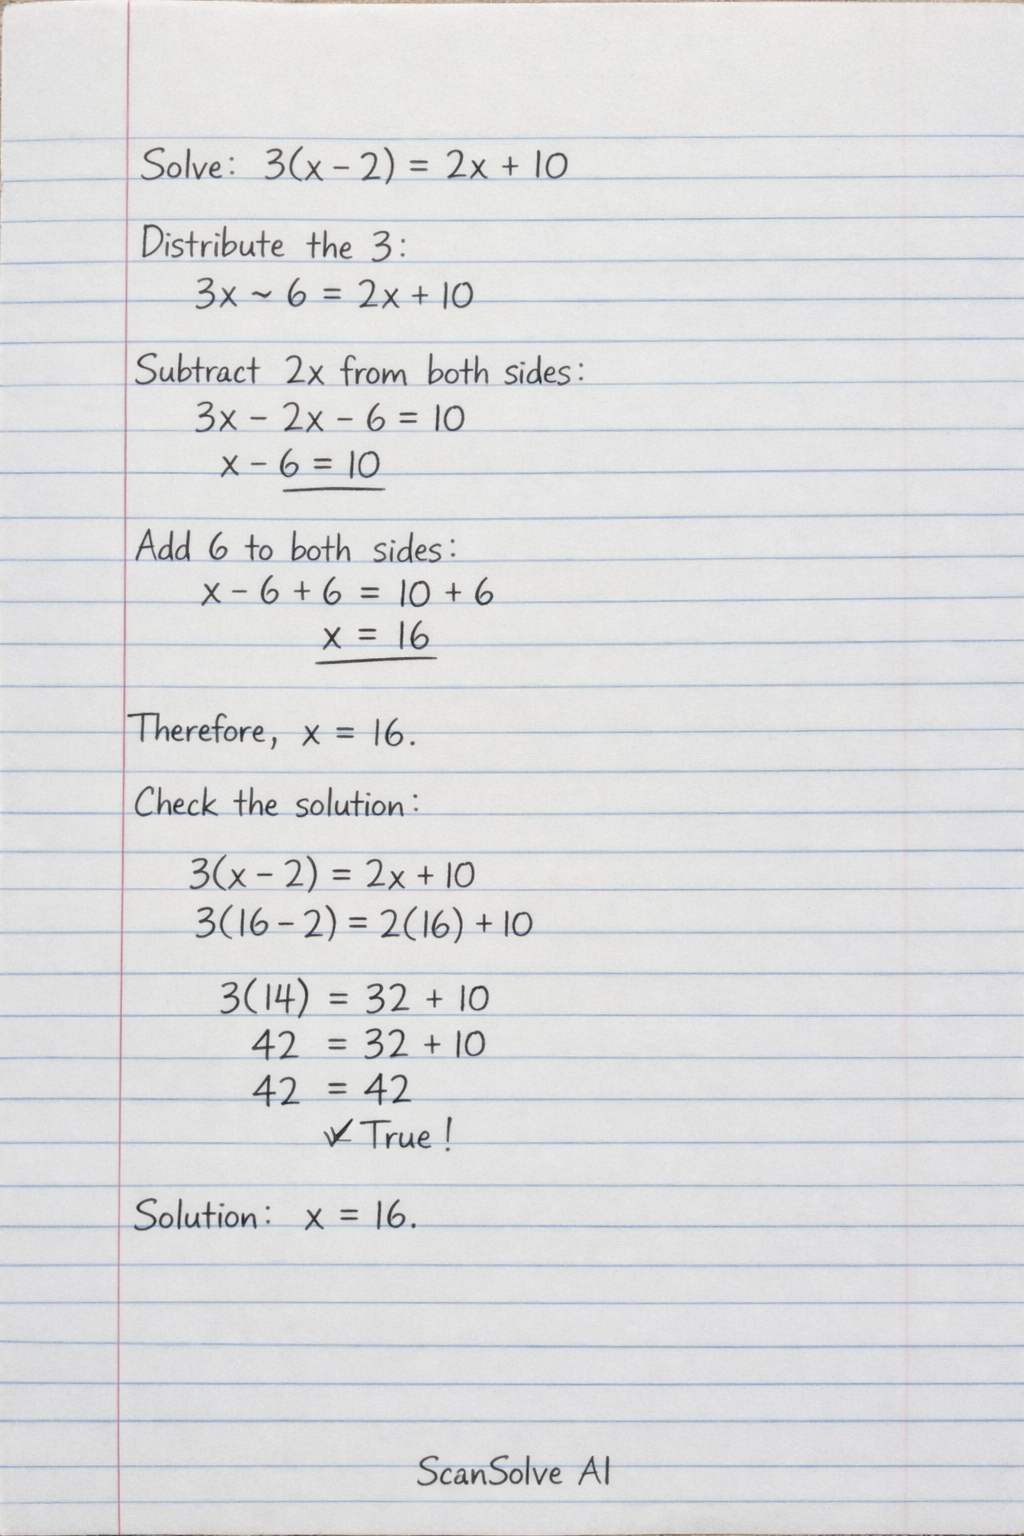 Solve: 3(x - 2) = 2x + 10
Distribute the 3:
3x ~ 6 = 2x + 10
Subtract 2x from both sides:
3x - 2x - 6 = 10
x - 6 = 10
Add 6 to both sides:
x - 6 + 6 = 10 + 6
x = 16
Therefore, x = 16.
Check the solution:
3(x - 2) = 2x + 10
3(16 - 2) = 2(16) + 10
3(14) = 32 + 10
42 = 32 + 10
42 = 42
✓ True!
Solution: x = 16.
ScanSolve AI